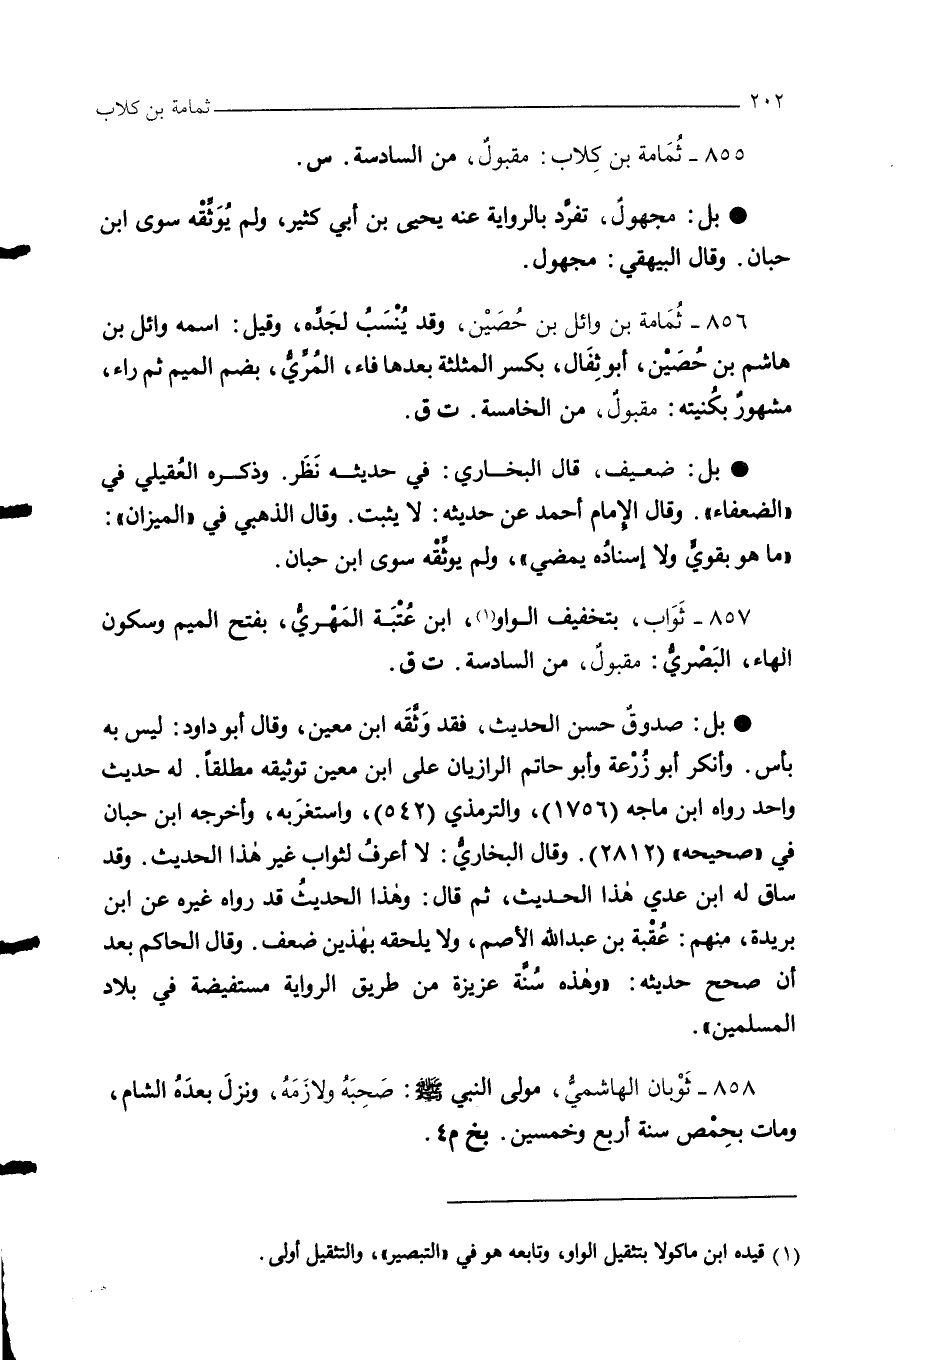 ٢٠٢ ثمامة بن كلاب
٨٥٥ ـ ثُمَامة بن كِلاب: مقبولٌ، من السادسة. س.
● بل: مجهولٌ، تفرَّد بالرواية عنه يحيى بن أبي كثير، ولم يُوَثِّقْه سوى ابن
حبان. وقال البيهقي: مجهول.
٨٥٦ ـ ثُمَامة بن وائل بن حُصَيْن، وقد يُنْسَبُ لجَدِّه، وقيل: اسمه وائل بن
هاشم بن حُصَيْن، أبو ثِفَال، بكسر المثلثة بعدها فاء، المُرِّيُّ، بضم الميم ثم راء،
مشهورٌ بكُنيته: مقبولٌ، من الخامسة. ت ق.
● بل: ضعيف، قال البخاري: في حديثه نَظَر. وذكره العُقيلي في
«الضعفاء». وقال الإمام أحمد عن حديثه: لا يثبت. وقال الذهبي في «الميزان»:
«ما هو بقويٍّ ولا إسنادُه يمضي»، ولم يوثِّقْه سوى ابن حبان.
٨٥٧ ـ ثَوَاب، بتخفيف الواو(١)، ابن عُتْبَة المَهْريُّ، بفتح الميم وسكون
الهاء، البَصْريُّ: مقبولٌ، من السادسة. ت ق.
● بل: صدوقٌ حسن الحديث، فقد وَثَّقَه ابن معين، وقال أبو داود: ليس به
بأس. وأنكر أبو زُرْعة وأبو حاتم الرازيان على ابن معين توثيقه مطلقاً. له حديث
واحد رواه ابن ماجه (١٧٥٦)، والترمذي (٥٤٢)، واستغرَبه، وأخرجه ابن حبان
في «صحيحه» (٢٨١٢). وقال البخاريُّ: لا أعرفُ لثواب غير هٰذا الحديث. وقد
ساق له ابن عدي هٰذا الحديث، ثم قال: وهٰذا الحديثُ قد رواه غيره عن ابن
بريدة، منهم: عُقْبة بن عبدالله الأصم، ولا يلحقه بهٰذين ضعف. وقال الحاكم بعد
أن صحح حديثه: «وهٰذه سُنَّة عزيزة من طريق الرواية مستفيضة في بلاد
المسلمين».
٨٥٨ ـ ثَوْبان الهاشميُّ، مولى النبي ﷺ: صَحِبَهُ ولازَمَهُ، ونزلَ بعدَهُ الشام،
ومات بحِمْص سنة أربع وخمسين. بخ م٤.
(١) قيده ابن ماكولا بتثقيل الواو، وتابعه هو في «التبصير»، والتثقيل أولى.